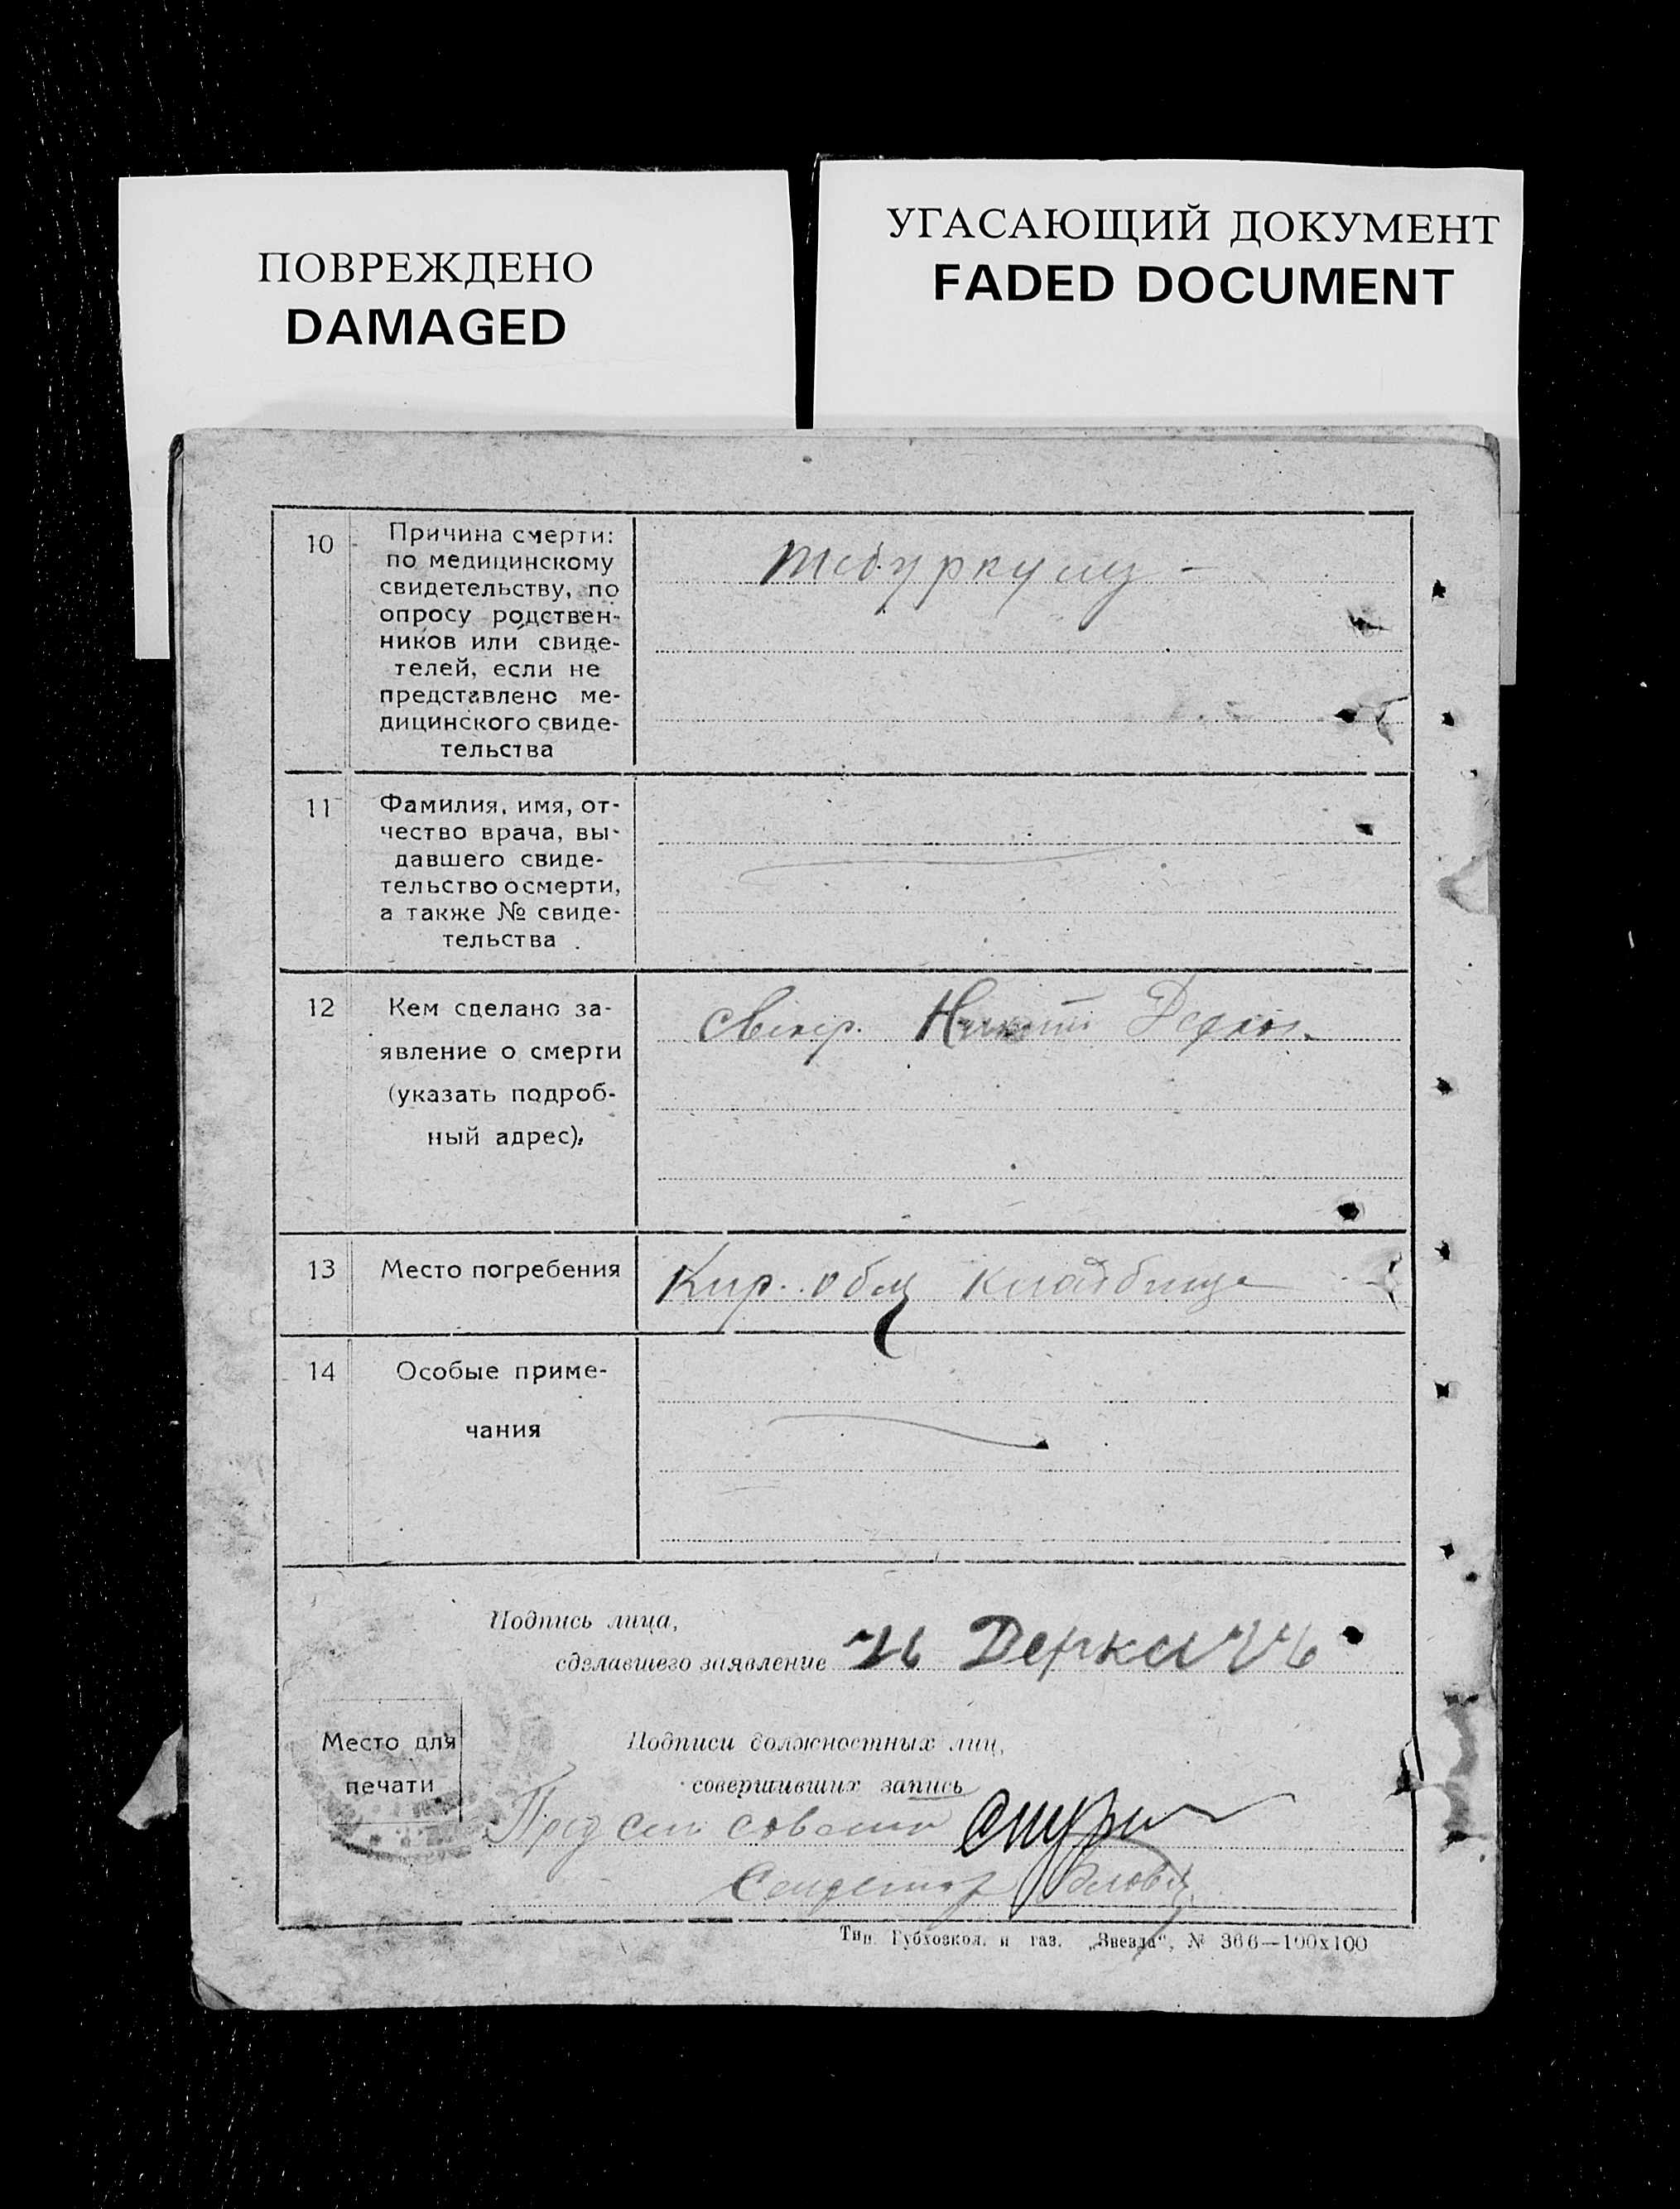 ПОВРЕЖДЕНО
DAMAGED
УГАСАЮЩИЙ ДОКУМЕНТ
FADED DOCUMENT
10
Причина смерти:
по медицинскому
свидетельству, по
опросу родствен-
ников или свиде-
телей, если не
представлено ме-
дицинского свиде-
тельства
11
Фамилия, имя, от-
чество врача, вы-
давшего свиде-
тельство о смерти,
а также № свиде-
тельства
12
Кем сделано за-
явление о смерти
(указать подроб-
ный адрес).
свекр.
13
Место погребения
Кир. общ кладбище
14
Особые приме-
чания
Подпись лица,
сделавшего заявление
Место для
печати
Подписи должностных лиц,
совершивших запись
Пред сел совета
Секретарь
Тип. Губхозкол. и газ. „Звезда“, № 366—100х100